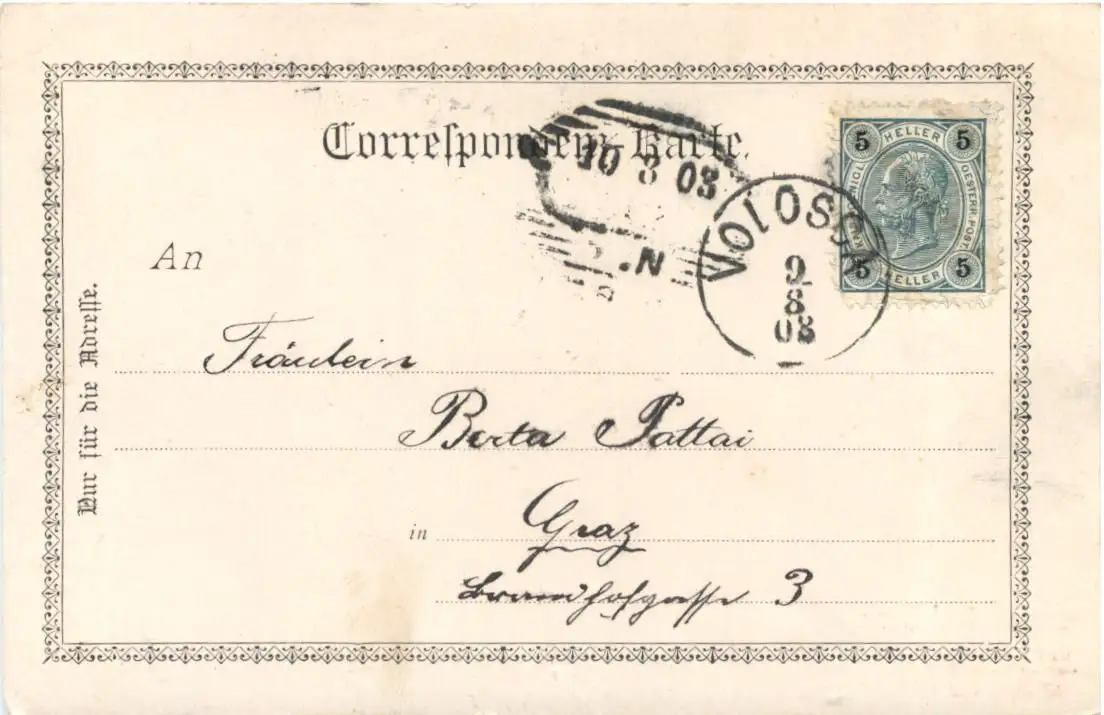 Correspondenz-Karte.
10 8 03
N.
VOLOSCA
9
8
03
5 HELLER 5
OESTERR. POST
5 HELLER 5
An
Nur für die Adresse.
Fräulein
Berta Pattai
in Graz
Brandhofgasse 3